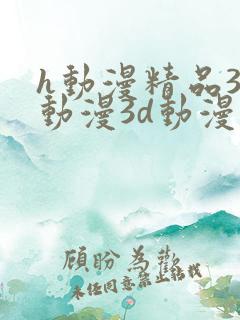 h動漫精品3
動漫3d動漫
顧盼為歡
未经同意禁止转载